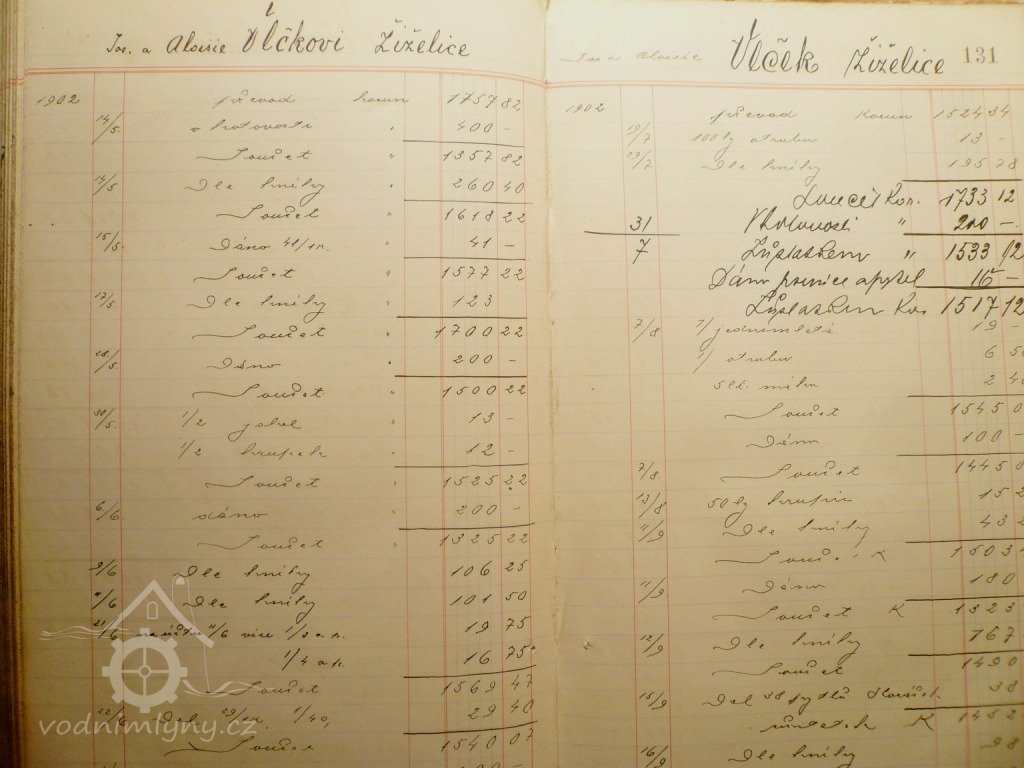 Jos. a Aloisie Vlčkovi Žiželice
1902 převod korun 1757 82
14/5 v hotovosti " 400 -
Součet " 1357 82
14/5 Dle knihy " 260 40
Součet " 1618 22
15/5 Dáno 41/1k. " 41 -
Součet " 1577 22
17/5 Dle knihy " 123
Součet " 1700 22
28/5 Dáno " 200 -
Součet " 1500 22
30/5 1/2 13 -
1/2 krupek 12 -
Součet " 1525 22
6/6 dáno " 200 -
Součet " 1325 22
9/6 Dle knihy 106 25
11/6 Dle knihy 101 50
21/6 11/6 více 1/2 a p. 19 75
1/4 a p. 16 75
Součet 1569 47
22/6 1/40, 29 40
Součet 1540 07
vodnimlyny.cz
Jos. a Aloisie Vlček Žiželice 131
1902 převod Korun 1524 34
19/7 100 kg otrub 13 -
29/7 Dle knihy 195 78
Součet Kor. 1733 12
31 V hotovosti " 200 -
7 Zůstatkem " 1533 12
Dáno psenice a pytel 15 -
Zůstatkem Kor. 1517 12
7/8. 1/ jednomleté 19 -
1/ otrub 6 50
5 lt. máku 2 40
Součet 1545 0
Dáno 100 -
7/8. Součet 1445 0
13/8 50 kg krupic 15 2
11/9 Dle knihy 43 2
Součet K 1503
11/9 Dáno 180
Součet K 1323
12/9 Dle knihy 167
Součet 1490
15/9 Dal 38 pytlů 38
zůstatek K 1452
16/9 Dle knihy 98